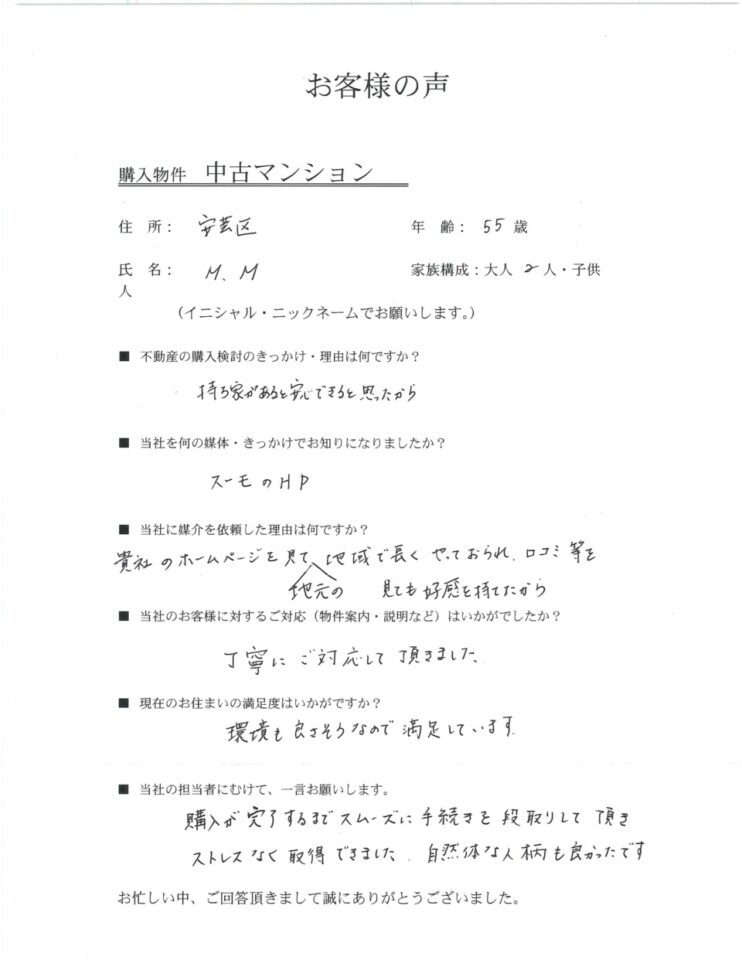 お客様の声
購入物件 中古マンション
住 所： 安芸区 年 齢： 55 歳
氏 名： M、M 家族構成：大人 2 人・子供
人
（イニシャル・ニックネームでお願いします。）
■ 不動産の購入検討のきっかけ・理由は何ですか？
持ち家があると安心できると思ったから
■ 当社を何の媒体・きっかけでお知りになりましたか？
スーモのHP
■ 当社に媒介を依頼した理由は何ですか？
貴社のホームページを見て、地域で長くやっておられ、口コミ等を
地元の 見ても好感を持てたから
■ 当社のお客様に対するご対応（物件案内・説明など）はいかがでしたか？
丁寧にご対応して頂きました。
■ 現在のお住まいの満足度はいかがですか？
環境も良さそうなので満足しています。
■ 当社の担当者にむけて、一言お願いします。
購入が完了するまでスムーズに手続きを段取りして頂き
ストレスなく取得できました。自然体な人柄も良かったです
お忙しい中、ご回答頂きまして誠にありがとうございました。